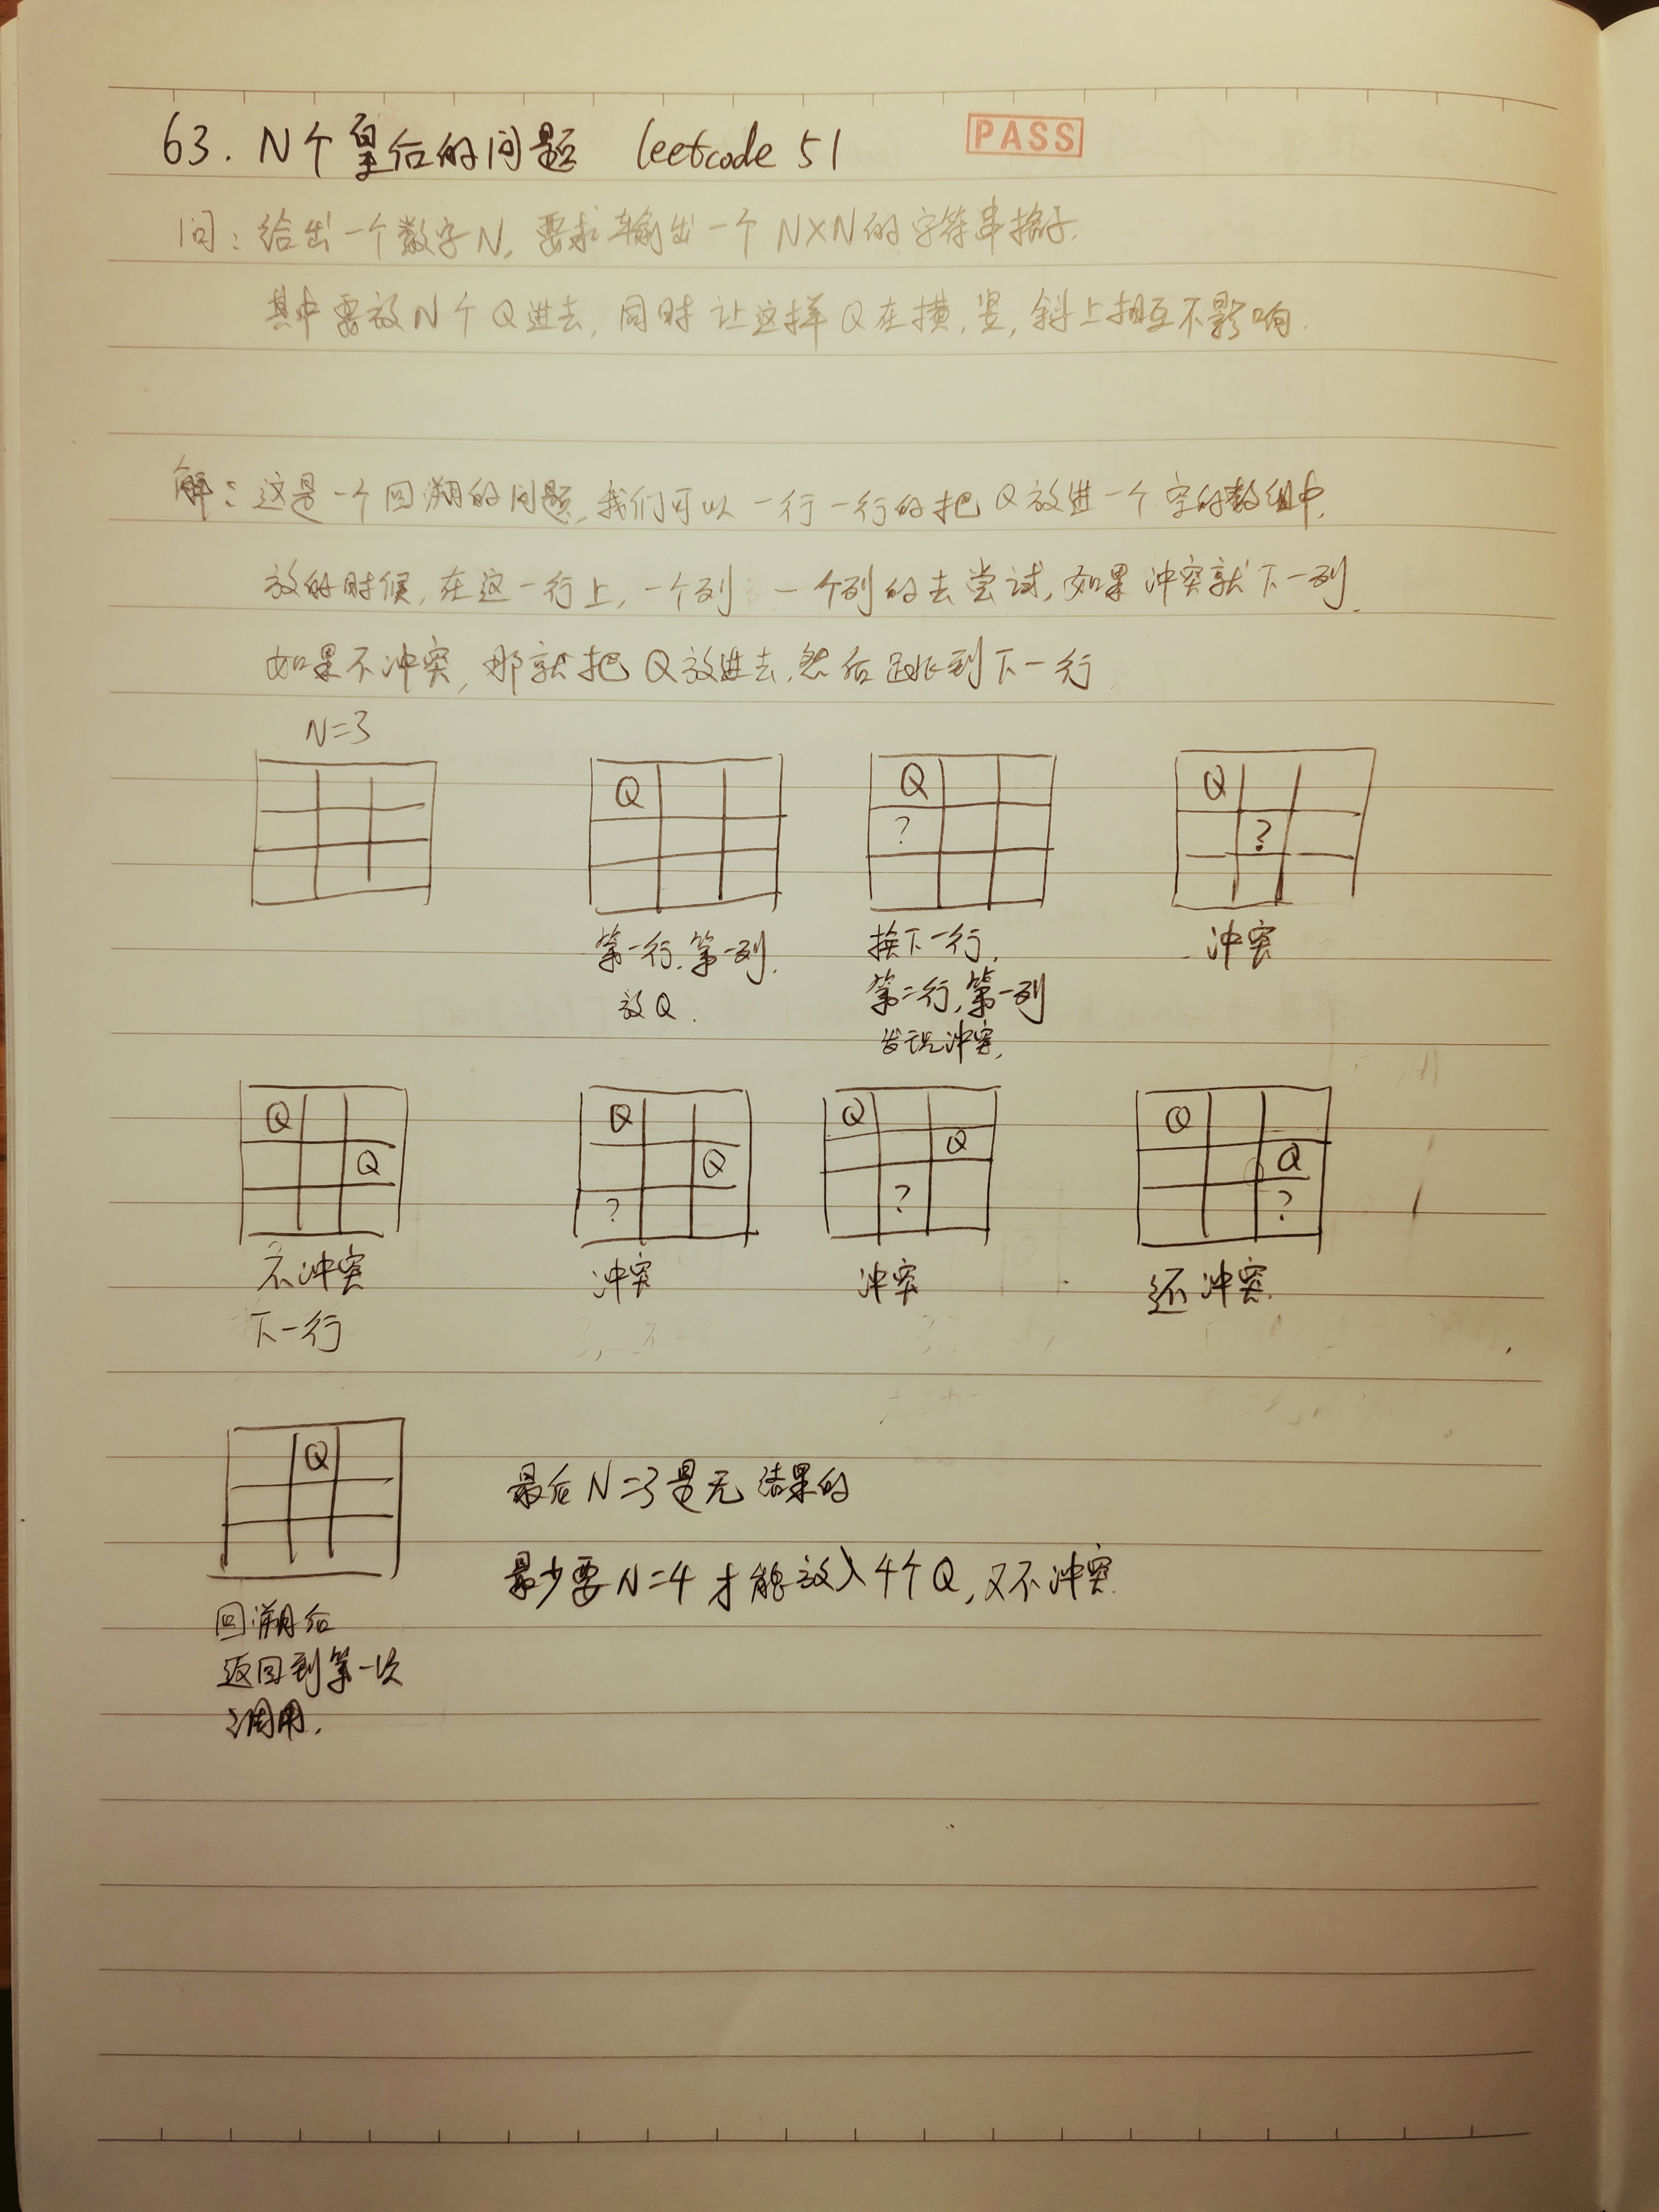 63. N个皇后的问题 leetcode 51 PASS
问：给出一个数字N，要求输出一个N×N的字符串格子.
其中需放N个Q进去，同时让这样Q在横，竖，斜上相互不影响.
解：这是一个回溯的问题，我们可以一行一行的把Q放进一个空的数组中，
放的时候，在这一行上，一个列一个列的去尝试，如果冲突就下一列.
如果不冲突，那就把Q放进去，然后跳到下一行
N=3
Q
Q
?
Q
?
第一行，第一列，
放Q.
换下一行，
第二行，第一列
发现冲突，
冲突
Q
Q
Q
Q
?
Q
Q
?
Q
Q
?
不冲突
下一行
冲突
冲突
还冲突.
Q
回溯后
返回到第一次
调用.
最后N=3是无结果的
最少要N=4才能放入4个Q，又不冲突.